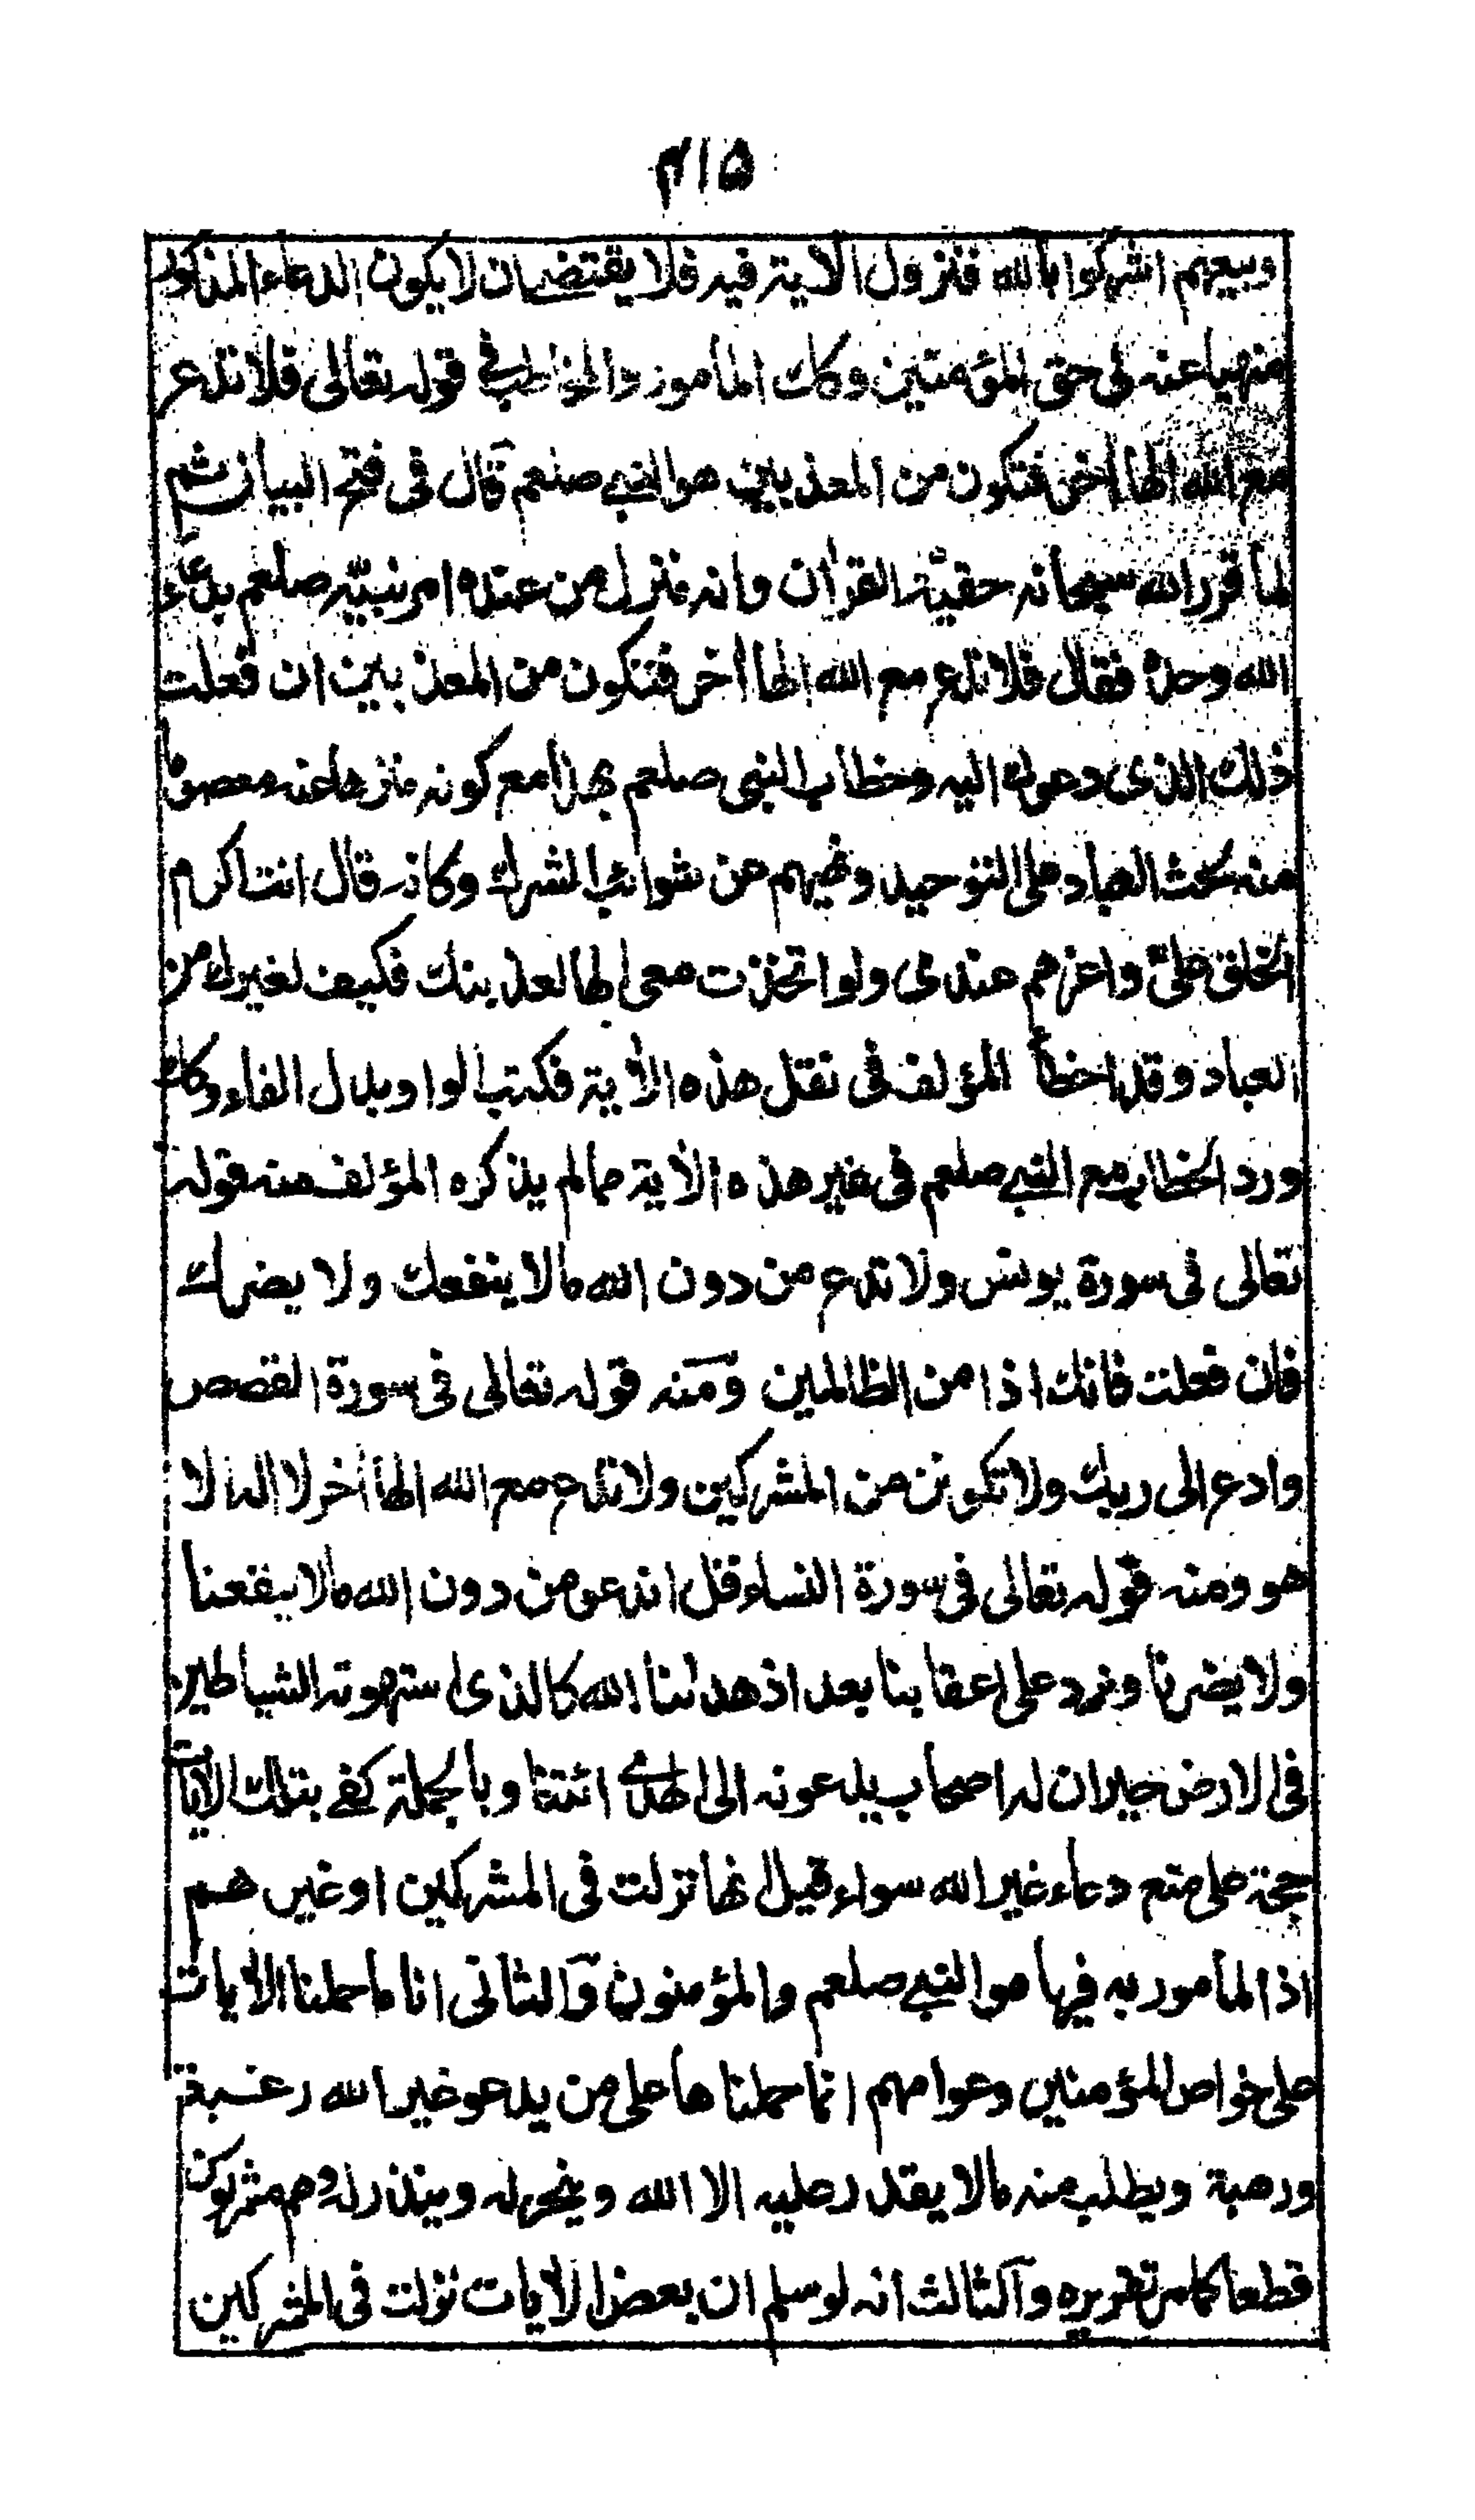 ۴۱۵
وبيعهم اشركوا بالله فنزول الاية فيه فلا يقتضى ان لا يكون الدعاء المذكور
منهيا عنه فى حق المؤمنين وكان المأمور والمخاطب فى قوله تعالى فلا تدع
مع الله الها اخر فتكون من المعذبين هو النبى صلعم قال فى فتح البيان ثم
لما قرر الله سبحانه حقيّة القران وانه منزل من عنده امر نبيّه صلعم بدعاء
الله وحده فقال فلا تدع مع الله الها اخر فتكون من المعذبين ان فعلت
ذلك الذى دعوك اليه وخطاب النبى صلعم بهذا مع كونه منزها عنه معصوما
منه لحث العباد على التوحيد ونهيهم عن شوائب الشرك وكانه قال انت اكرم
الخلق علىّ واعزهم عندى ولو اتخذت معى الها لعذبتك فكيف لغيرك من
العباد وقد اخطأ المؤلف فى نقل هذه الأية فكتب الواو بدل الفاء وكان
ورد الخطاب مع النبى صلعم فى غير هذه الأية مما لم يذكره المؤلف منه قوله
تعالى فى سورة يونس ولا تدع من دون الله مالا ينفعك ولا يضرك
فان فعلت فانك اذا من الظالمين ومنه قوله تعالى فى سورة القصص
وادع الى ربك ولا تكونن من المشركين ولا تدع مع الله الها أخر لا اله الا
هو ومنه قوله تعالى فى سورة النساء قل اندعو من دون الله مالا ينفعنا
ولا يضرنا ونرد على اعقابنا بعد اذ هدانا الله كالذى استهوته الشياطين
فى الارض حيران له اصحاب يدعونه الى الهدى ائتنا وبالجملة كفى بتلك الأيات
حجة على منع دعاء غير الله سواء قيل انها نزلت فى المشركين او غيرهم
اذ المأمور به فيها هو النبى صلعم والمؤمنون والثانى انا ما حملنا الأيات
على خواص المؤمنين وعوامهم انما حملناها على من يدعو غير الله رغبة
ورهبة ويطلب منه مالا يقدر عليه الا الله وينحر له وينذر له وهم مشركون
قطعا كما مر تقريره والثالث انه لو سلم ان بعض الأيات نزلت فى المشركين